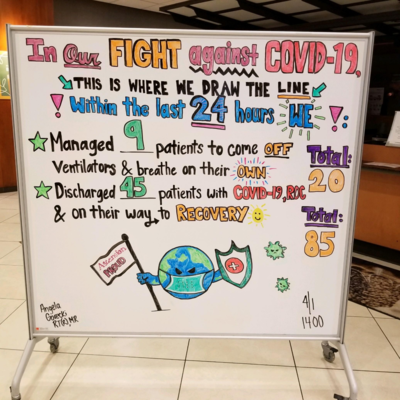 In Our FIGHT against COVID-19,
THIS IS WHERE WE DRAW THE LINE
! Within the last 24 hours WE !:
Managed 9 patients to come OFF
Ventilators & breathe on their OWN
Total:
20
Discharged 45 patients with COVID-19, ROC
& on their way to RECOVERY
Total:
85
Ascension
PROUD
Angela
RT(R)MR
4/1
1400